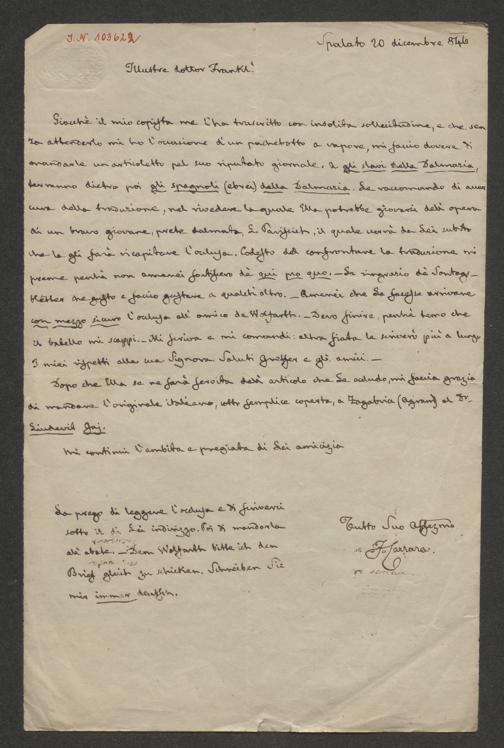 I.N. 103622
Spalato 20 dicembre 846
Illustre dottor Frankl!
Giacchè il mio copista me l'ha trascritto con insolita sollecitudine, e che sen
za attenderlo mi ho l'occasione d'un pachebotto a vapore, mi faccio dovere di
mandarle un articoletto pel suo riputato giornale. È gli slavi della Dalmazia,
terranno dietro poi gli spagnoli (ebrei) della Dalmazia. Le raccomando di aver
cura della traduzione, nel rivedere la quale Ella potrebbe giovarsi dell' opera
di un bravo giovane, prete dalmata, il quale verrà da Lei subito
che la gli farà ricapitare l'occlusa. Codesto del confrontare la traduzione mi
preme perchè non amerei fossero dei qui pro quo. - La ringrazio dei Sontags-
blätter che gusto e faccio gustare a qualch'altro. - Amerei che La facesse arrivare
con mezzo sicuro l'occlusa all' amico de Wolfarth. - Devo finire, perchè temo che
il battello mi scappi. - Mi scriva e mi comandi: altra fiata le scriverò più a lungo
I miei rispetti alla sua Signora. Saluti Greffer e gli amici. -
Dopo che Ella se ne sarà servita dell' articolo che Le acludo, mi faccia grazia
di mandare l'originale italiano, sotto semplice coperta, a Zagabria (Agram) al Dr.
Liudevit Gaj.
Mi continui l'ambita e pregiata di Lei amicizia
La prego di leggere l'occlusa e di scriverci
sotto il di Lei indirizzo. Poi di mandarla
all' abate. - Dem Wolfarth bitte ich den
Brief gleich zu schicken. Schreiben Sie
mir immer deutsch.
Tutto Suo Affezmo
F. Carrara.